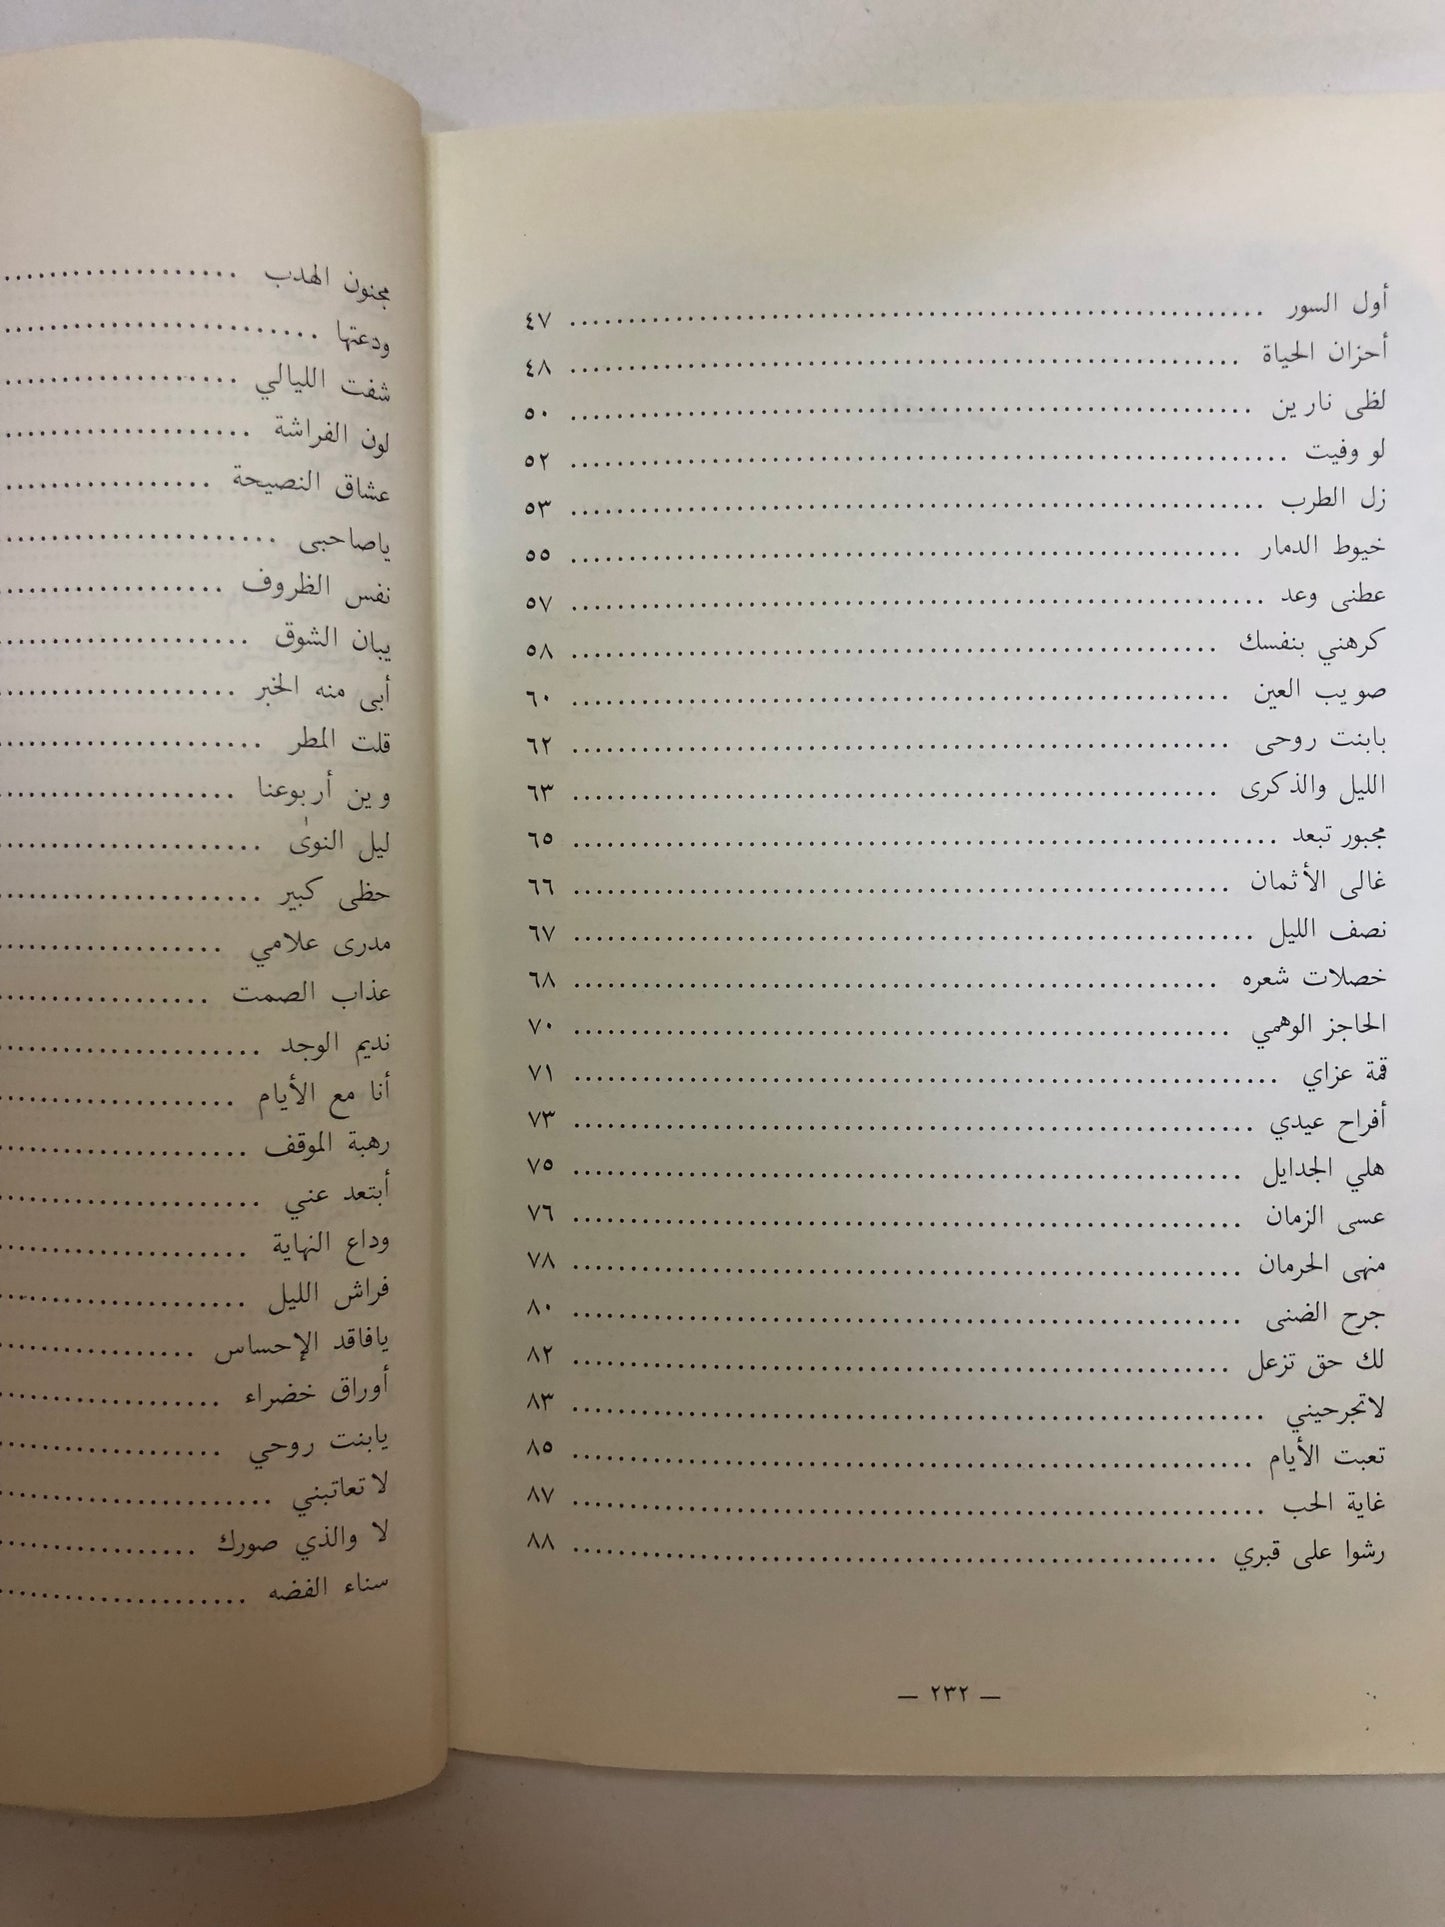 أول السور ........ ٤٧
أحزان الحياة ........ ٤٨
لظى نارين ........ ٥٠
لو وفيت ........ ٥٢
زل الطرب ........ ٥٣
خيوط الدمار ........ ٥٥
عطنى وعد ........ ٥٧
كرهني بنفسك ........ ٥٨
صويب العين ........ ٦٠
بابنت روحى ........ ٦٢
الليل والذكرى ........ ٦٣
مجبور تبعد ........ ٦٥
غالى الأثمان ........ ٦٦
نصف الليل ........ ٦٧
خصلات شعره ........ ٦٨
الحاجز الوهمي ........ ٧٠
قمة عزاي ........ ٧١
أفراح عيدي ........ ٧٣
هلي الجدايل ........ ٧٥
عسى الزمان ........ ٧٦
منهى الحرمان ........ ٧٨
جرح الضنى ........ ٨٠
لك حق تزعل ........ ٨٢
لاتجرحيني ........ ٨٣
تعبت الأيام ........ ٨٥
غاية الحب ........ ٨٧
رشوا على قبري ........ ٨٨
— ٢٣٢ —
مجنون الهدب ........
ودعتها ........
شفت الليالي ........
لون الفراشة ........
عشاق النصيحة ........
ياصاحبى ........
نفس الظروف ........
يبان الشوق ........
أبى منه الخبر ........
قلت المطر ........
وين أربوعنا ........
ليل النوىٰ ........
حظى كبير ........
مدرى علامي ........
عذاب الصمت ........
نديم الوجد ........
أنا مع الأيام ........
رهبة الموقف ........
أبتعد عني ........
وداع النهاية ........
فراش الليل ........
يافاقد الإحساس ........
أوراق خضراء ........
يابنت روحي ........
لا تعاتبني ........
لا والذي صورك ........
سناء الفضه ........